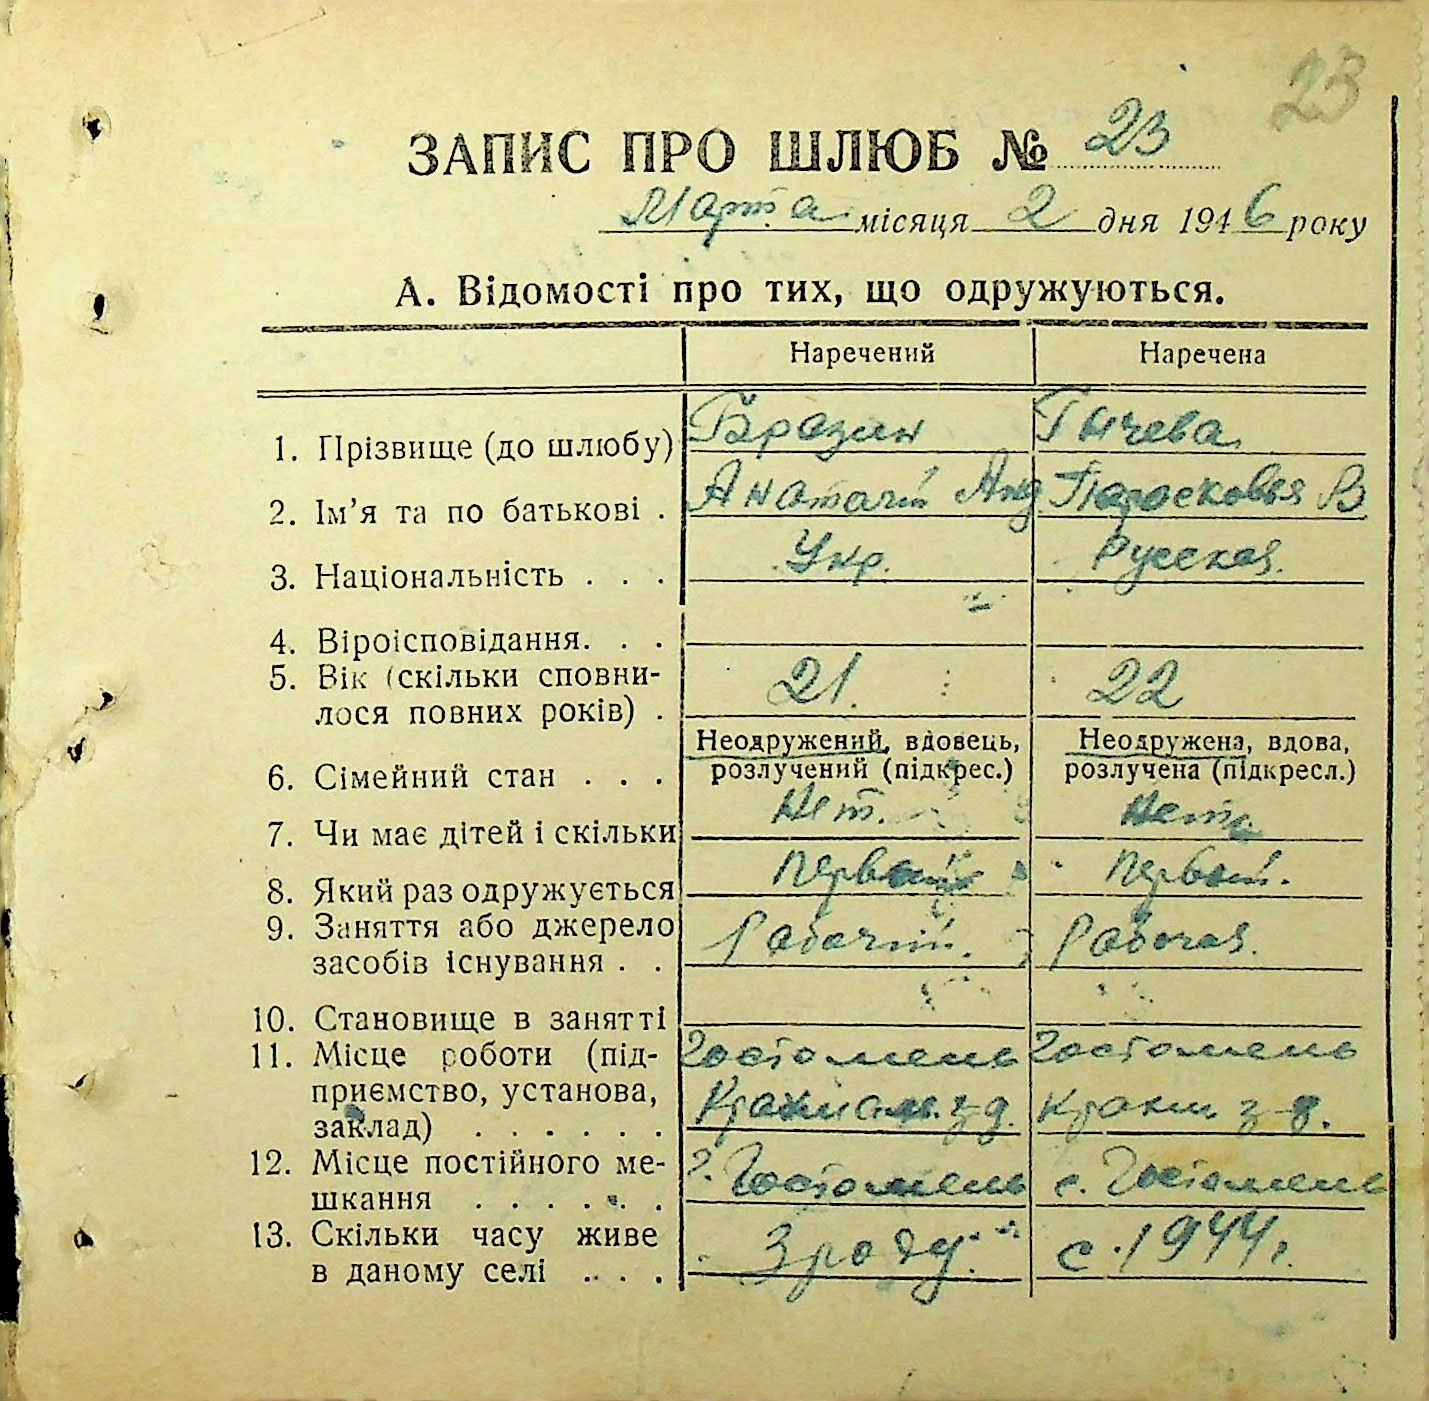 23
ЗАПИС ПРО ШЛЮБ № 23
Марта місяця 2 дня 1946 року
А. Відомості про тих, що одружуються.
Наречений Наречена
1. Прізвище (до шлюбу) Бразин Гычева
2. Ім’я та по батькові . Анатолій Анд Парасковья В
3. Національність . . . Укр. Русская.
4. Віроісповідання. . .
5. Вік (скільки сповни-
лося повних років) . 21. 22
6. Сімейний стан . . . Неодружений, вдовець, Неодружена, вдова,
розлучений (підкрес.) розлучена (підкресл.)
7. Чи має дітей і скільки Нет. Нет
8. Який раз одружується первый первый.
9. Заняття або джерело
засобів існування . . Рабочий. Рабочая.
10. Становище в занятті
11. Місце роботи (під- Гостомель Гостомель
приємство, установа, Крахмал. з-д. Крахм з-д.
заклад) . . . . . .
12. Місце постійного ме-
шкання . . . . . . с. Гостомель с. Гостомель
13. Скільки часу живе
в даному селі . . . З роду. с 1944 г.